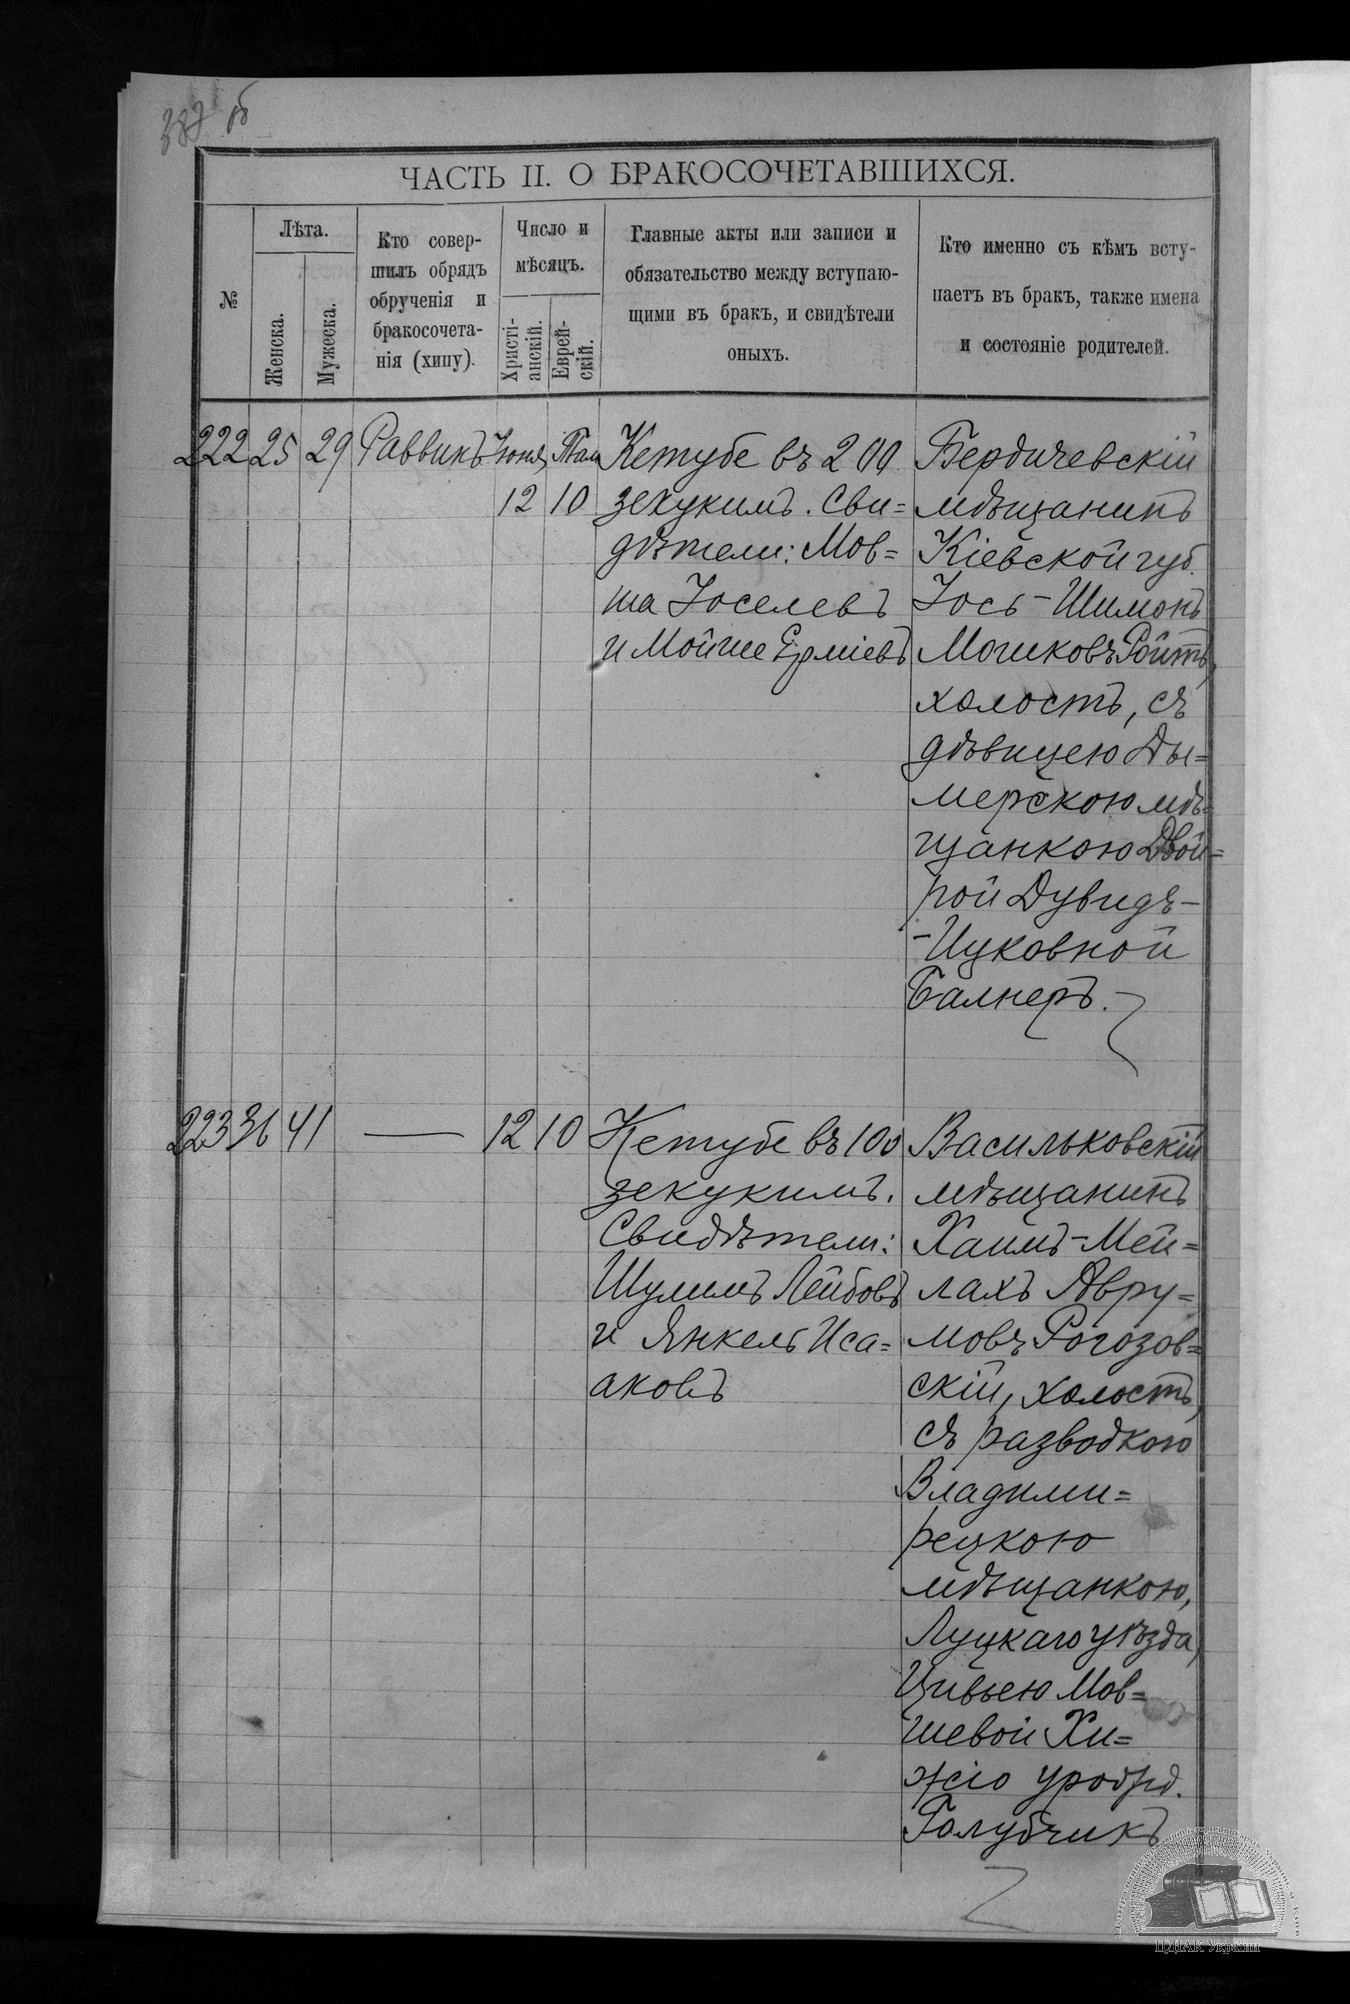 387 об
ЧАСТЬ II. О БРАКОСОЧЕТАВШИХСЯ.
№
Лѣта.
Женска.
Мужеска.
Кто совер-
шилъ обрядъ
обрученія и
бракосочета-
нія (хипу).
Число и
мѣсяцъ.
Христі-
анскій.
Еврей-
скій.
Главные акты или записи и
обязательство между вступаю-
щими въ бракъ, и свидѣтели
оныхъ.
Кто именно съ кѣмъ всту-
паетъ въ бракъ, также имена
и состояніе родителей.
222 25 29 Раввинъ Іюня Там
12 10
Кетубе въ 200
зехукимъ. Сви=
дѣтели: Мов=
ша Іоселевъ
и Мойше Ерміевъ
Бердичевскій
мѣщанинъ
Кіевской губ.
Іось-Шимонъ
Мошковъ Ройтъ,
холостъ, съ
дѣвицею Ды=
мерскою мѣ=
щанкою Двой=
рой Дувидъ-
-Ицковной
Балнеръ.
223 36 41 — 12 10
Кетубе въ 100
зекукимъ.
Свидѣтели:
Шулимъ Лейбовъ
и Янкель Иса=
аковъ
Васильковскій
мѣщанинъ
Хаимъ-Мей=
лахъ Авру=
мовъ Рогозов=
скій, холостъ,
съ разводкою
Владими=
рецкою
мѣщанкою,
Луцкаго уѣзда,
Цивьею Мов=
шевой Хи=
жію урожд.
Голубчикъ
ЦДІАК України